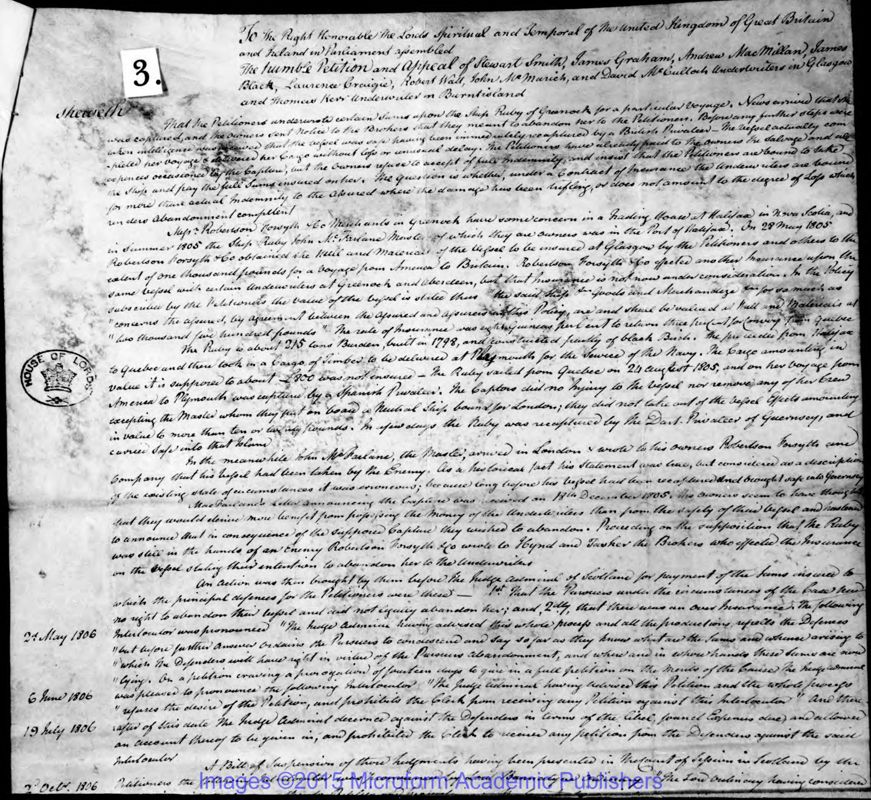 3.
To the Right Honorable the Lords Spiritual and Temporal of the United Kingdom of Great Britain
and Ireland in Parliament assembled
The humble Petition and Appeal of Stewart Smith, James Graham, Andrew MacMillan, James
Black, Laurence Craigie, Robert Watt, John McMurich, and David McCulloch Underwriters in Glasgow
and Thomas Kerr Underwriter in Burntisland
Sheweth
That the Petitioners underwrote certain Sums upon the Ship Ruby of Greenock for a particular Voyage. News arrived that she
was captured, and the owners sent Notice to the Brokers that they meant to abandon her to the Petitioners. Before any further steps were
when intelligence was received that the vessel was safe having been immediately recaptured by a British Privateer. The vessel actually com
pleted her voyage & delivered her Cargo without loss or unusual delay. The Petitioners have already paid to the owners the Salvage and all
expences occasioned by the Capture, but the owners refuse to accept of full Indemnity, and insist that the Petitioners are bound to take
the Ship and pay the full Sums insured on her. The Question is whether, under a Contract of Insurance the Underwriters are bound
for more than actual Indemnity to the assured where the damage has been trifling, or does not amount to the degree of Loss which
renders abandonment competent
Messrs Robertson Forsyth & Co Merchants in Greenock have some concern in a Trading House at Halifax in Nova Scotia, and
in Summer 1805 the Ship Ruby John McParlane Master of which they are owners was in the Port of Halifax. On 28 May 1805
Robertson Forsyth & Co obtained the Hull and Materials of the Vessel to be insured at Glasgow by the Petitioners and others to the
extent of one thousand pounds for a Voyage from America to Britain. Robertson Forsyth & Co effected another Insurance upon the
same vessel with certain Underwriters at Greenock and Aberdeen, but that Insurance is not now under consideration. In the Policy
subscribed by the Petitioners the value of the vessel is stated thus "the said Ship &c Goods and Merchandize &c for so much as
"concerns the assured, by agreement between the assured and assurers in this Policy, are and shall be valued at Hull and Materials at
"two thousand five hundred pounds" The rate of Insurance was eight Guineas per Cent to return three per Cent for Convoy from Quebec
The Ruby is about 215 tons Burden, built in 1798, and constructed partly of black Birch. She proceeded from Halifax
to Quebec and there took in a Cargo of Timber to be delivered at Plymouth for the Service of the Navy. The Cargo amounting in
value it is supposed to about £800 was not insured – The Ruby sailed from Quebec on 24 August 1805, and on her voyage from
America to Plymouth was captured by a Spanish Privateer. The Captors did no Injury to the Vessel nor remove any of her Crew
excepting the Master whom they put on board a Neutral Ship bound for London; they did not take out of the vessel Effects amounting
in value to more than ten or twenty pounds. In a few days the Ruby was recaptured by the Dart Privateer of Guernsey, and
carried Safe into that Island
In the meanwhile John McParlane, the Master, arrived in London & wrote to his owners Robertson Forsyth and
Company that his vessel had been taken by the Enemy. As a historical fact his Statement was true, but considered as a description
of the existing state of circumstances it was erroneous, because long before his vessel had been recaptured and brought safe into Guernsey
MacParlane's letter announcing the Capture was received on 18th December 1805. His owners seem to have thought
that they would derive more benefit from possessing the Money of the Underwriters than from the safety of their vessel and hastened
to announce that in consequence of the supposed Capture they wished to abandon. Proceeding on the supposition that the Ruby
was still in the hands of an Enemy Robertson Forsyth & Co wrote to Hynd and Tasker the Brokers who effected the Insurance
on the vessel stating their intention to abandon her to the Underwriters
An action was then brought by them before the Judge Admiral of Scotland for payment of the Sums insured to
which the principal defences for the Petitioners were these – 1st That the Pursuers under the circumstances of the Case had
no right to abandon their vessel and did not equity abandon her; and, 2dly, that there was an over Insurance. The following
24 May 1806 Interlocutor was pronounced "The Judge Admiral having advised this whole process and all the productions, repells the Defences
"but before further answer Ordains the Pursuers to condescend and say so far as they know what are the Sums and whence arising to
"which the Defenders will have right in virtue of the Pursuers abandonment, and where and in whose hands these Sums are now
"lying. On a petition craving a prorogation of fourteen days to give in a full petition on the Merits of the Cause The Judge Admiral
6 June 1806 was pleased to pronounce the following Interlocutor "The Judge Admiral having advised this Petition and the whole process
"refuses the desire of the Petition, and prohibits the Clerk from receiving any Petition against this Interlocutor" And there
19 July 1806 after of this date The Judge Admiral decerned against the Defenders in terms of the Libel, found Expences due, and allowed
an account thereof to be given in, and prohibited the Clerk to receive any petition from the Defenders against the said
Interlocutor
A Bill of Suspension of those Judgments having been presented in the Court of Session in Scotland by the
2d Octr. 1806 Petitioners the The Lord Ordinary having considered
HOUSE OF LORDS
Images ©2015 Microform Academic Publishers